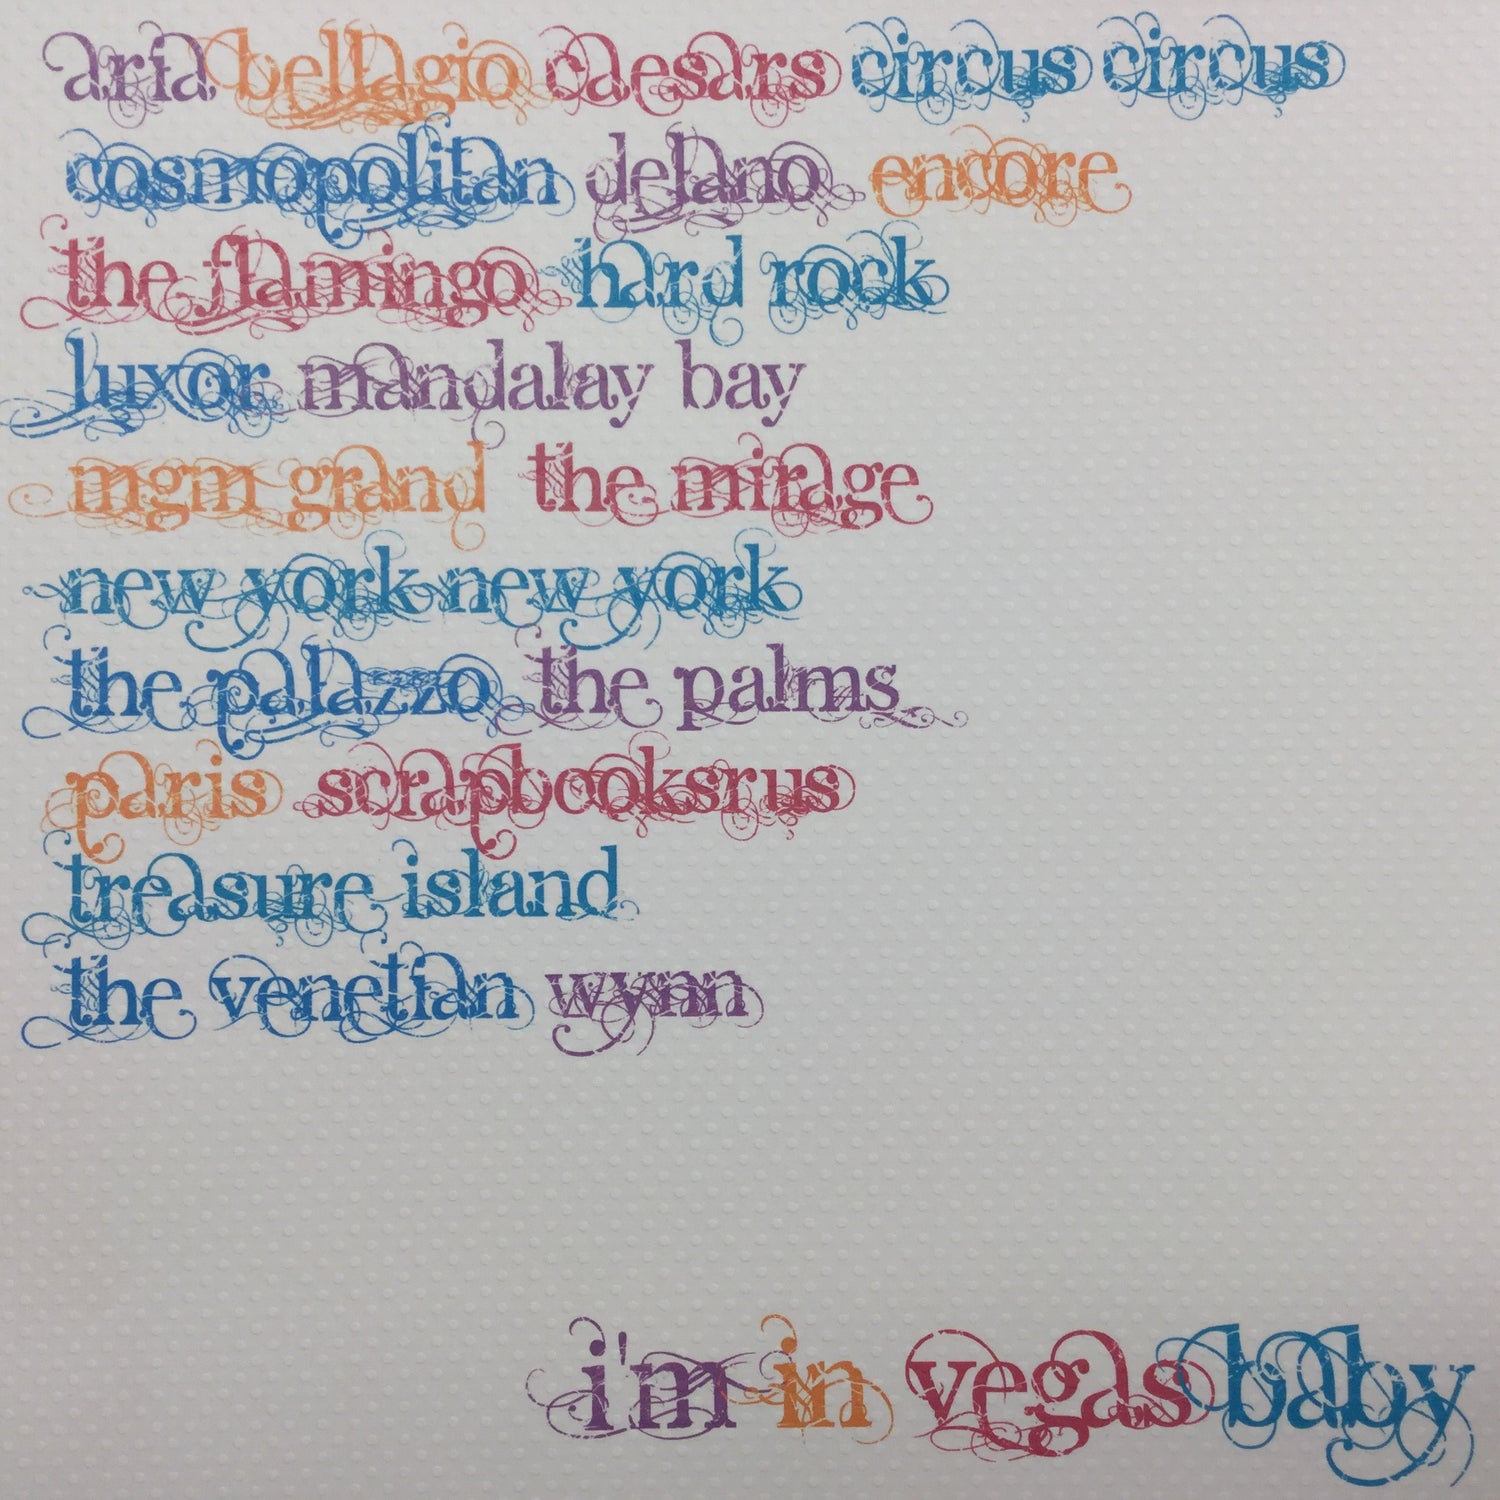 aria bellagio caesars circus circus
cosmopolitan delano encore
the flamingo hard rock
luxor mandalay bay
mgm grand the mirage
new york new york
the palazzo the palms
paris scrapbooksrus
treasure island
the venetian wynn
i'm in vegas baby